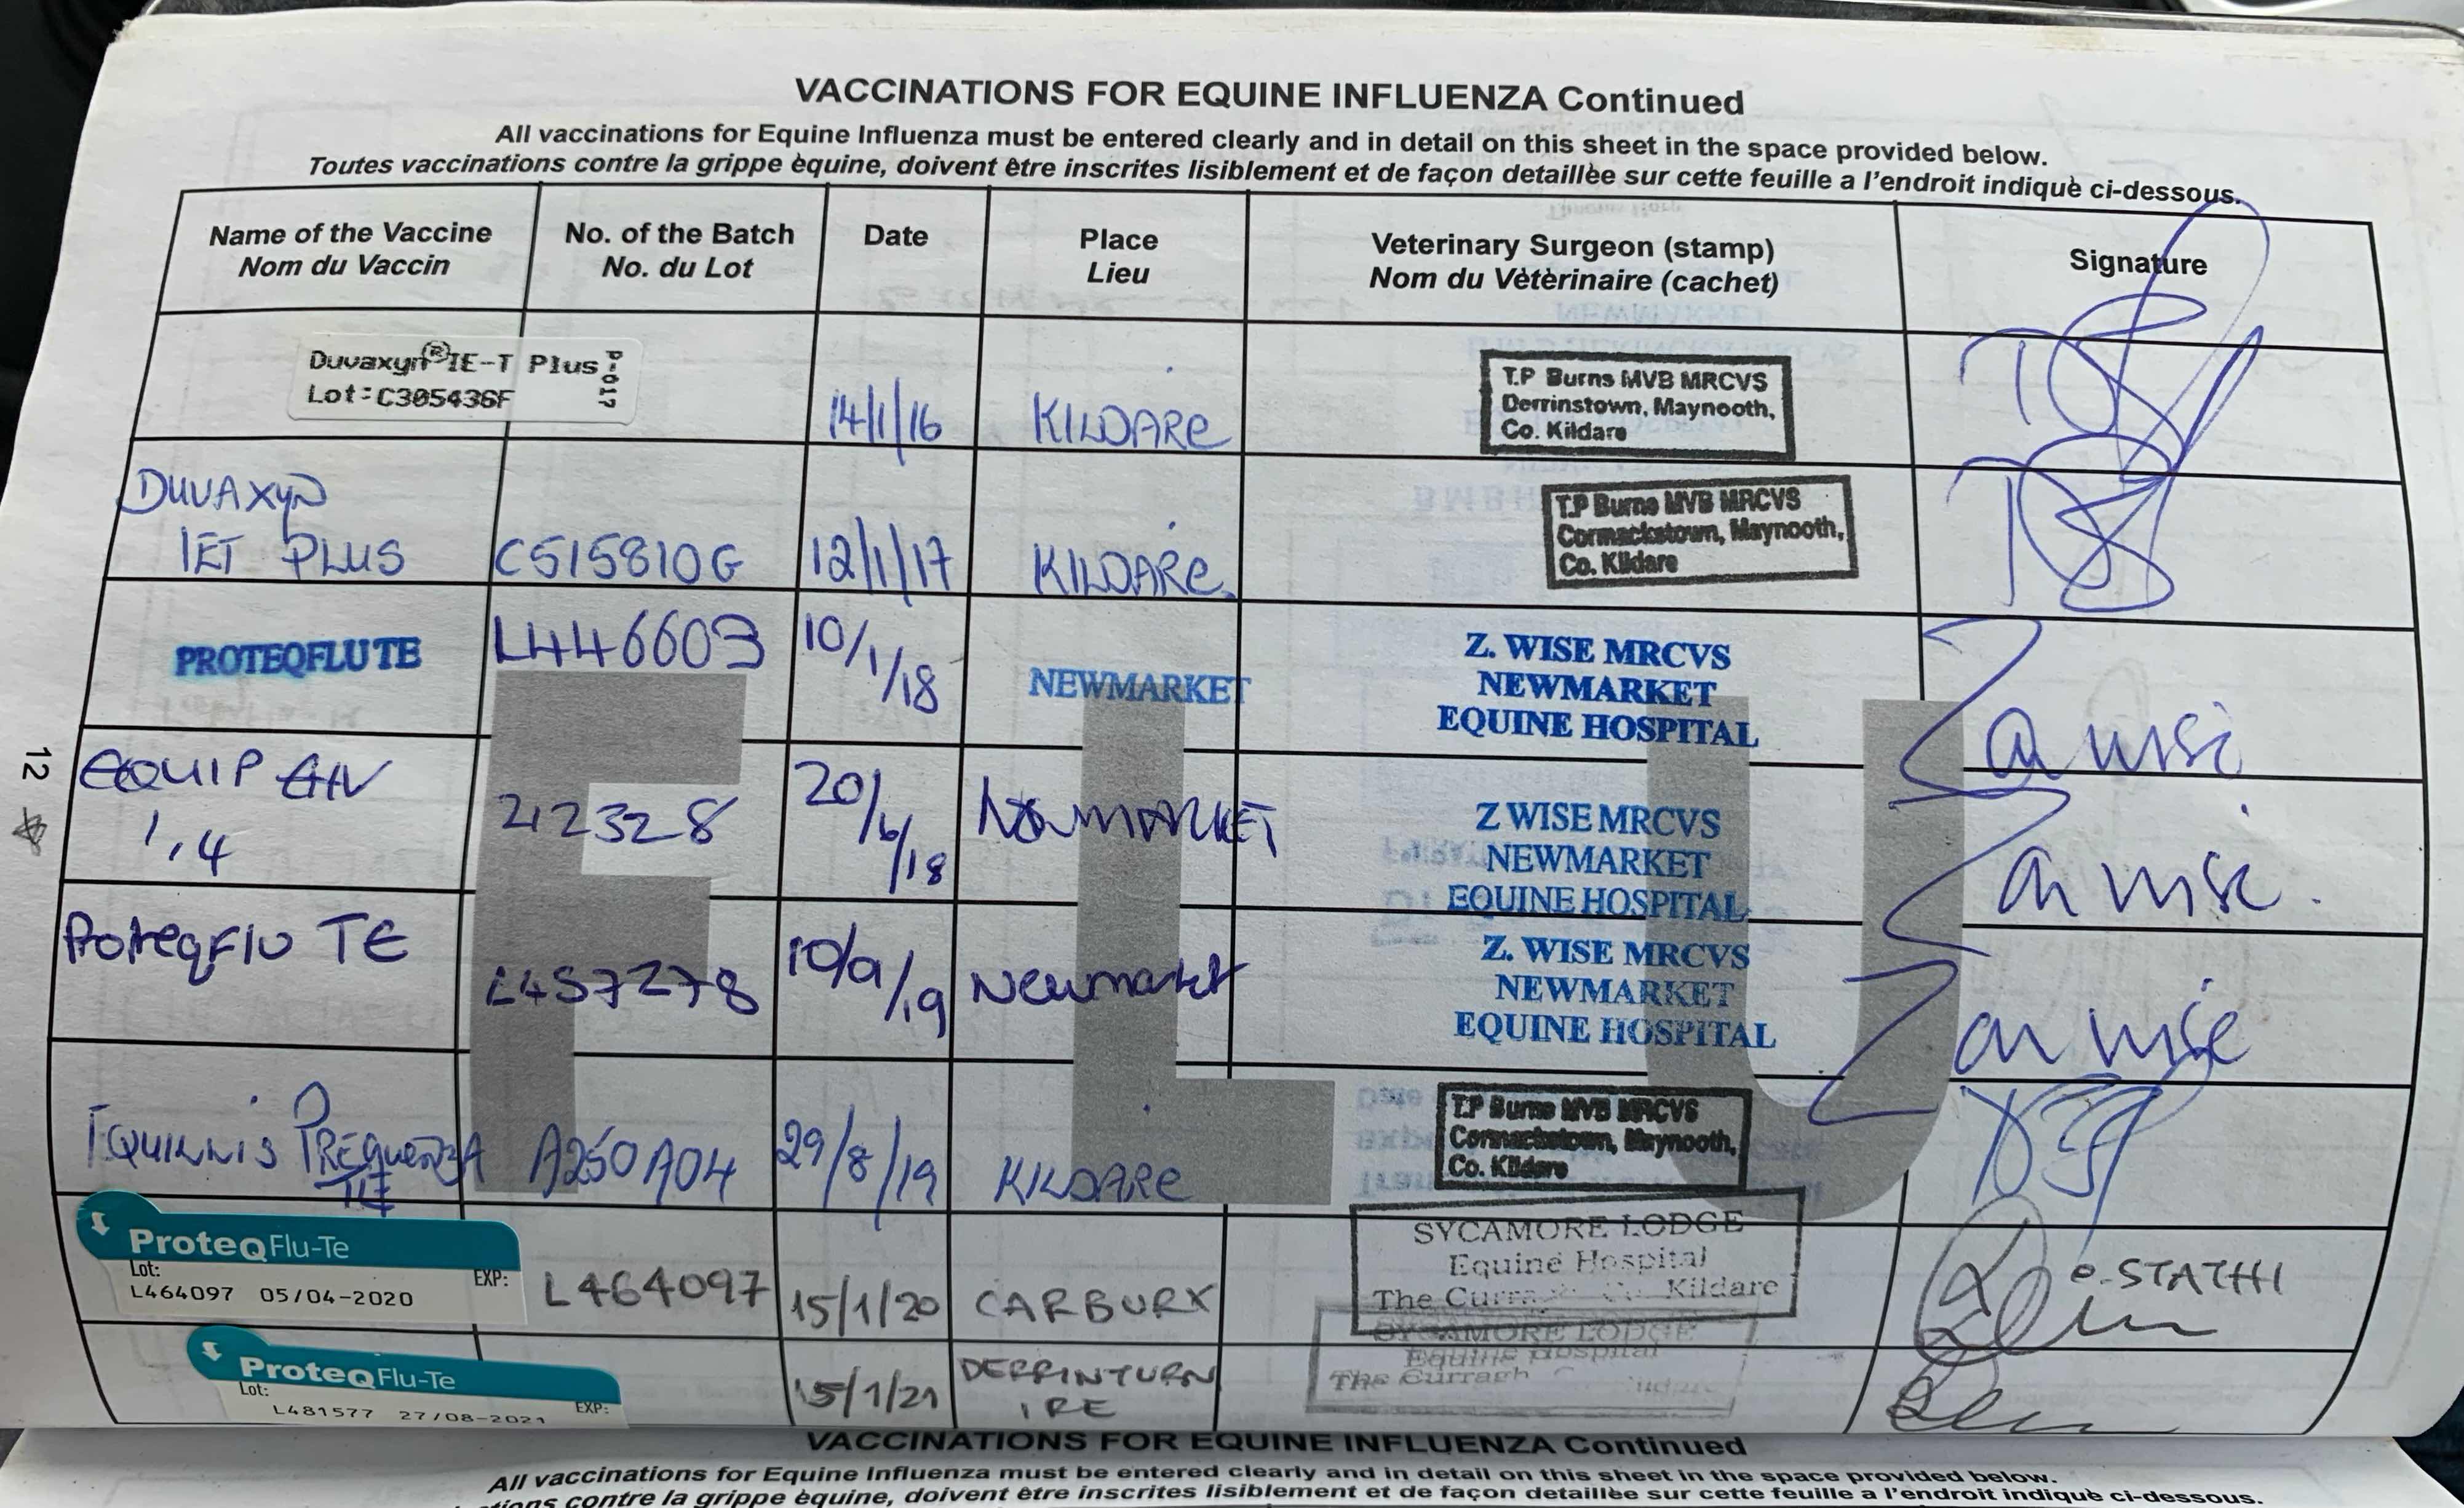 VACCINATIONS FOR EQUINE INFLUENZA Continued
All vaccinations for Equine Influenza must be entered clearly and in detail on this sheet in the space provided below.
Toutes vaccinations contre la grippe èquine, doivent être inscrites lisiblement et de façon detaillèe sur cette feuille a l'endroit indiquè ci-dessous.
Name of the Vaccine
Nom du Vaccin
No. of the Batch
No. du Lot
Date
Place
Lieu
Veterinary Surgeon (stamp)
Nom du Vètèrinaire (cachet)
Signature
Duvaxyn® IE-T Plus
Lot: C305436F
14/1/16
KILDARE
T.P Burns MVB MRCVS
Derrinstown, Maynooth,
Co. Kildare
DUVAXYN
IET PLUS
C515810G
12/1/17
KILDARE
T.P Burns MVB MRCVS
Cormackstown, Maynooth,
Co. Kildare
PROTEQFLU TE
L446603
10/1/18
NEWMARKET
Z. WISE MRCVS
NEWMARKET
EQUINE HOSPITAL
EQUIP EHV
1,4
212328
20/6/18
NEWMARKET
Z WISE MRCVS
NEWMARKET
EQUINE HOSPITAL
ProteqFlu TE
L457278
10/9/19
Newmarket
Z. WISE MRCVS
NEWMARKET
EQUINE HOSPITAL
EQUILIS PREQUENZA
TE
A250A04
29/8/19
KILDARE
T.P Burns MVB MRCVS
Cormackstown, Maynooth,
Co. Kildare
ProteqFlu-Te
Lot:
EXP:
L464097 05/04-2020
L464097
15/1/20
CARBURY
SYCAMORE LODGE
Equine Hospital
The Curragh Co. Kildare
e. STATHI
ProteqFlu-Te
Lot:
EXP:
L481577 27/08-2021
15/1/21
DERRINTURN
IRE
SYCAMORE LODGE
Equine Hospital
The Curragh
FLU
12
VACCINATIONS FOR EQUINE INFLUENZA Continued
All vaccinations for Equine Influenza must be entered clearly and in detail on this sheet in the space provided below.
contre la grippe èquine, doivent être inscrites lisiblement et de façon detaillèe sur cette feuille a l'endroit indiquè ci-dessous.